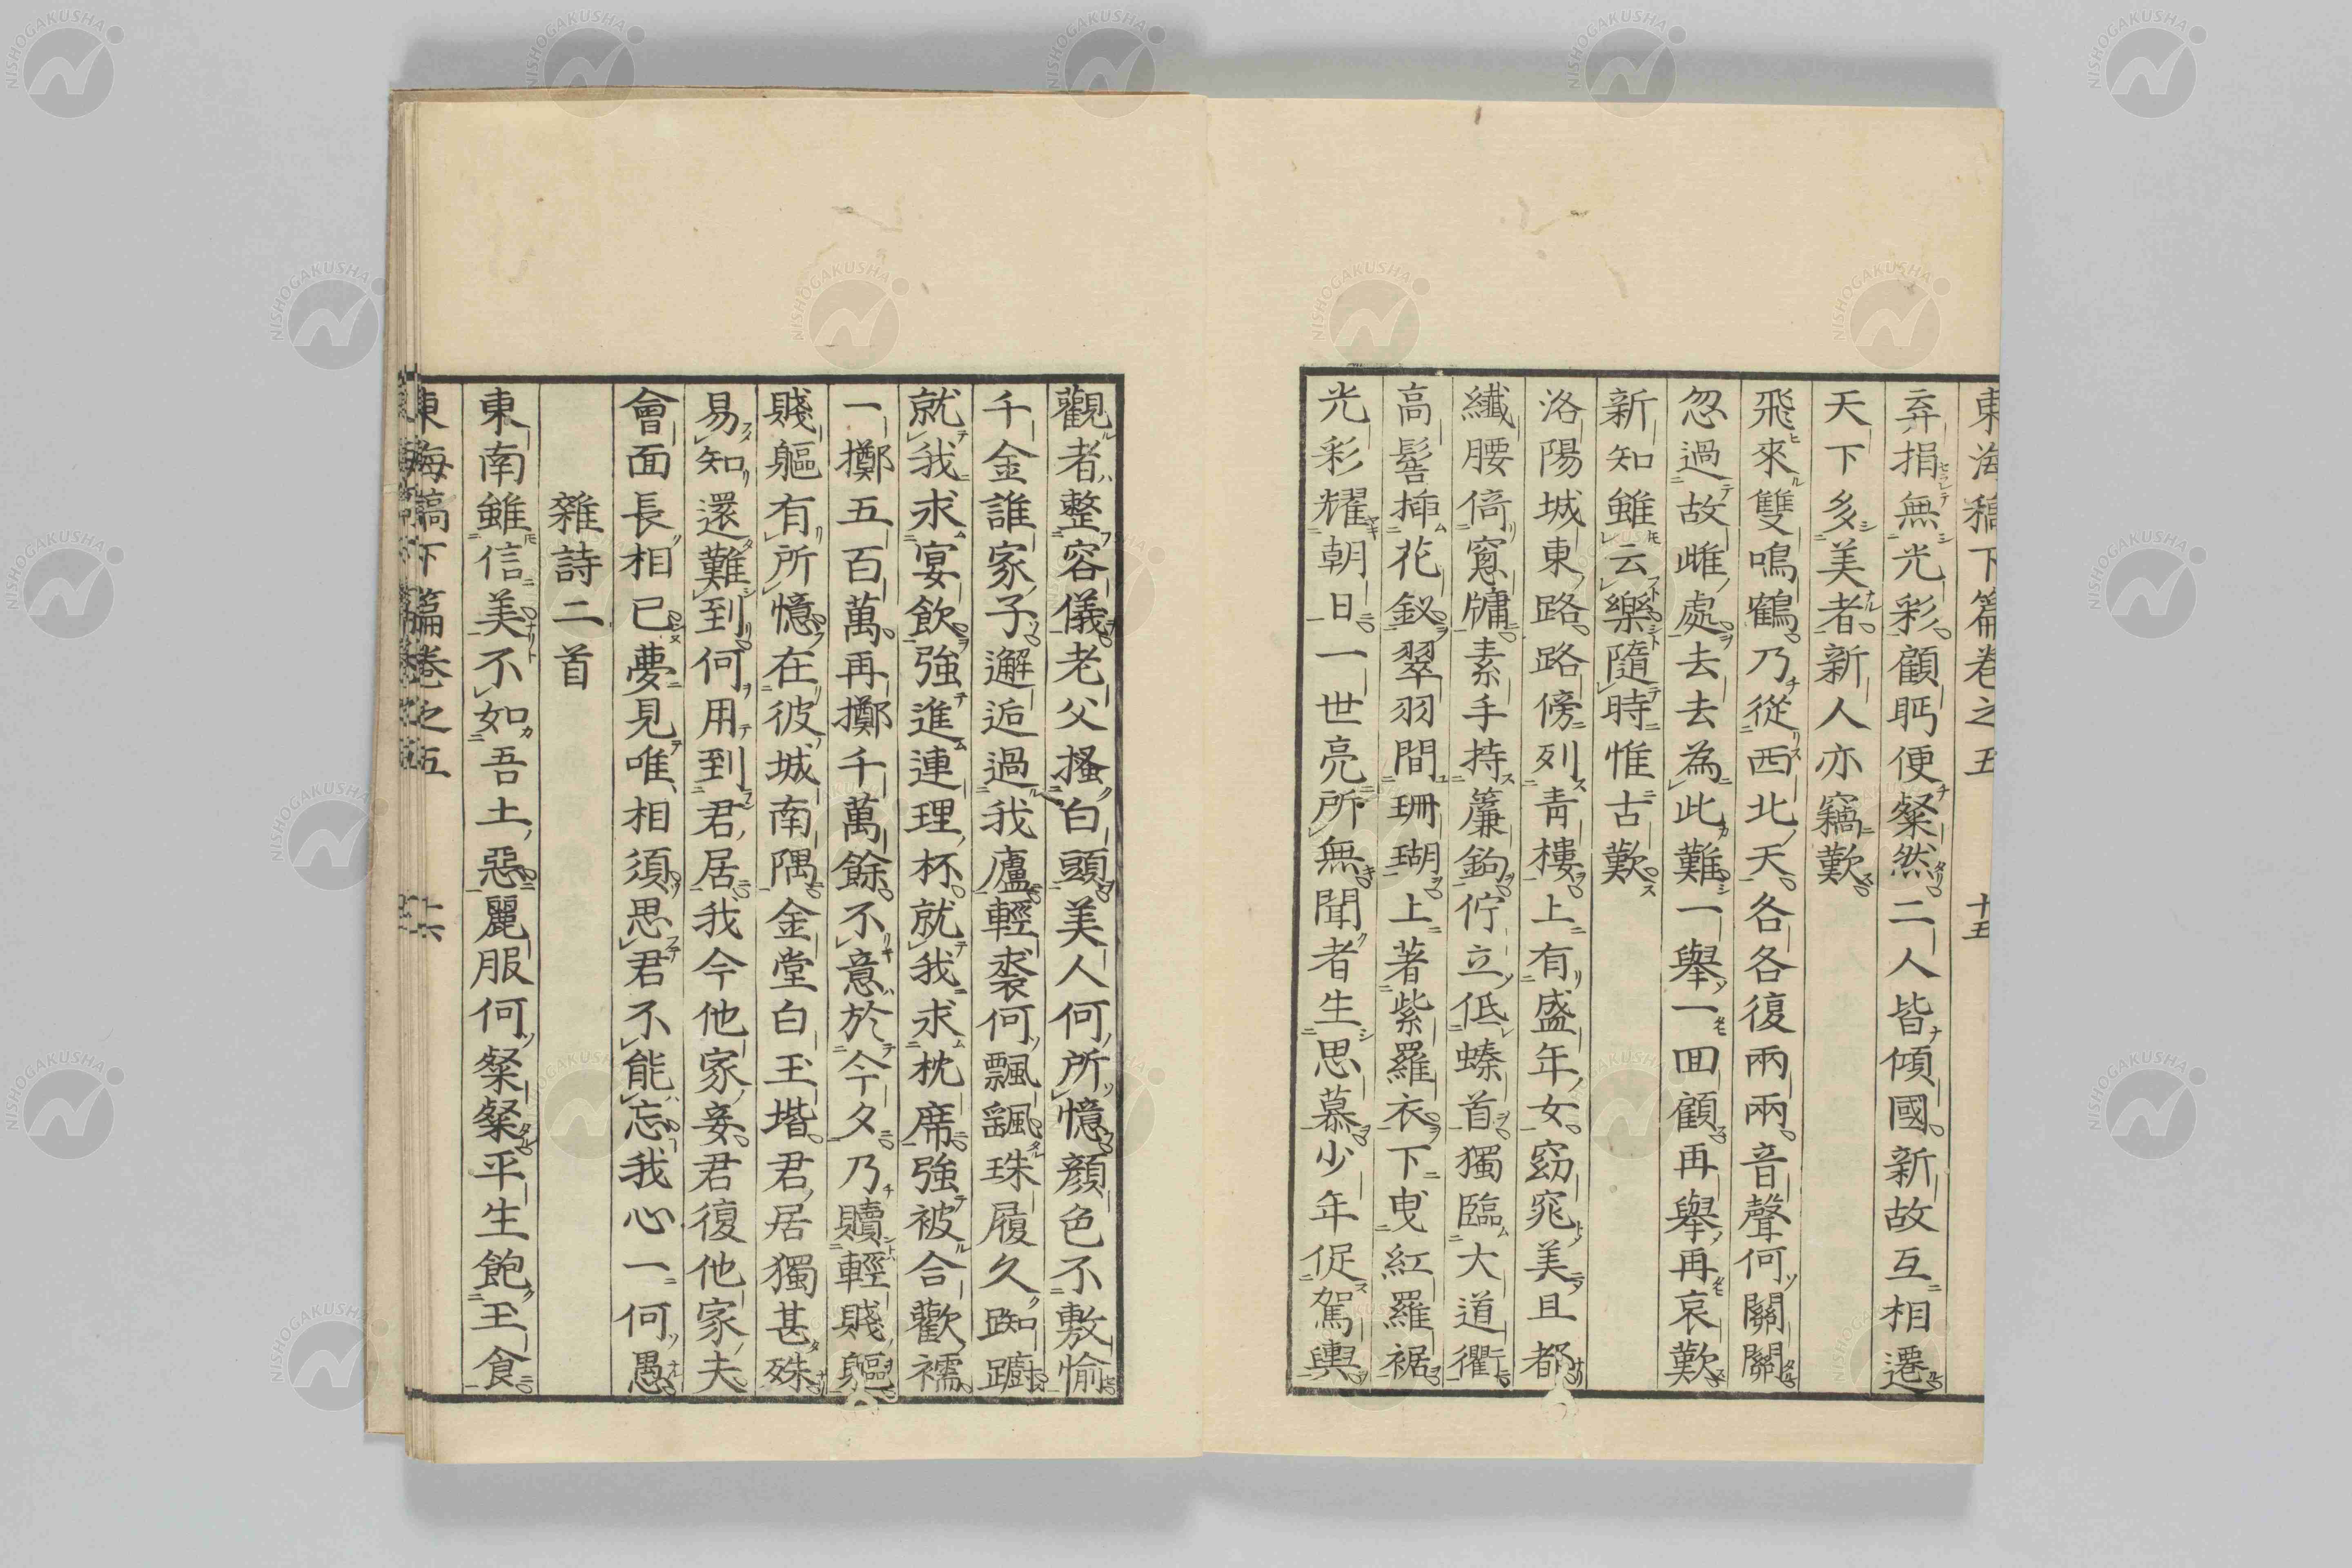 東海稿下篇卷之五 十五
弃捐無光彩顧眄便粲然二人皆傾國新故互相遷
天下多美者新人亦竊歎
飛來雙鳴鶴乃從西北天各各復兩兩音聲何關關
忽過故雌處去去為此難一舉一囬顧再舉再哀歎
新知雖云樂隨時惟古歎
洛陽城東路路傍列靑樓上有盛年女窈窕美且都
纎腰倚窻牗素手持簾鉤佇立低螓首獨臨大道衢
高髻插花釵翠羽間珊瑚上著紫羅衣下曳紅羅裾
光彩耀朝日一世亮所無聞者生思慕少年促駕輿
觀者整容儀老父搔白頭美人何所憶顏色不敷愉
千金誰家子邂逅過我廬輕裘何飄颻珠履久踟躕
就我求宴飲強進連理杯就我求枕席強被合歡襦
一擲五百萬再擲千萬餘不意於今夕乃贖輕賤軀
賤軀有所憶在彼城南隅金堂白玉堦君居獨甚殊
易知還難到何用到君居我今他家妾君復他家夫
會面長相已夢見唯相須思君不能忘我心一何愚
雜詩二首
東南雖信美不如吾土惡麗服何粲粲平生飽玉食
東海稿下篇卷之五 十六
NISHOGAKUSHA